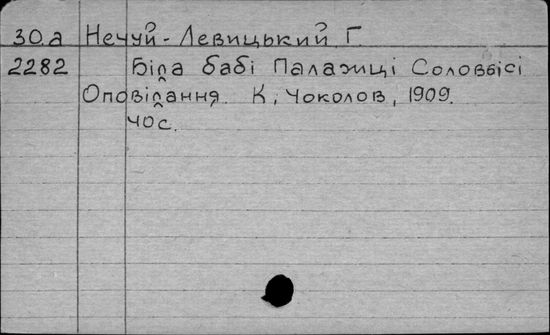 30.а Нечуй-Левицький Г.
2282 Біда бабі Палажці Соловвісі
Оповідання. К, Чоколов, 1909.
40 с.